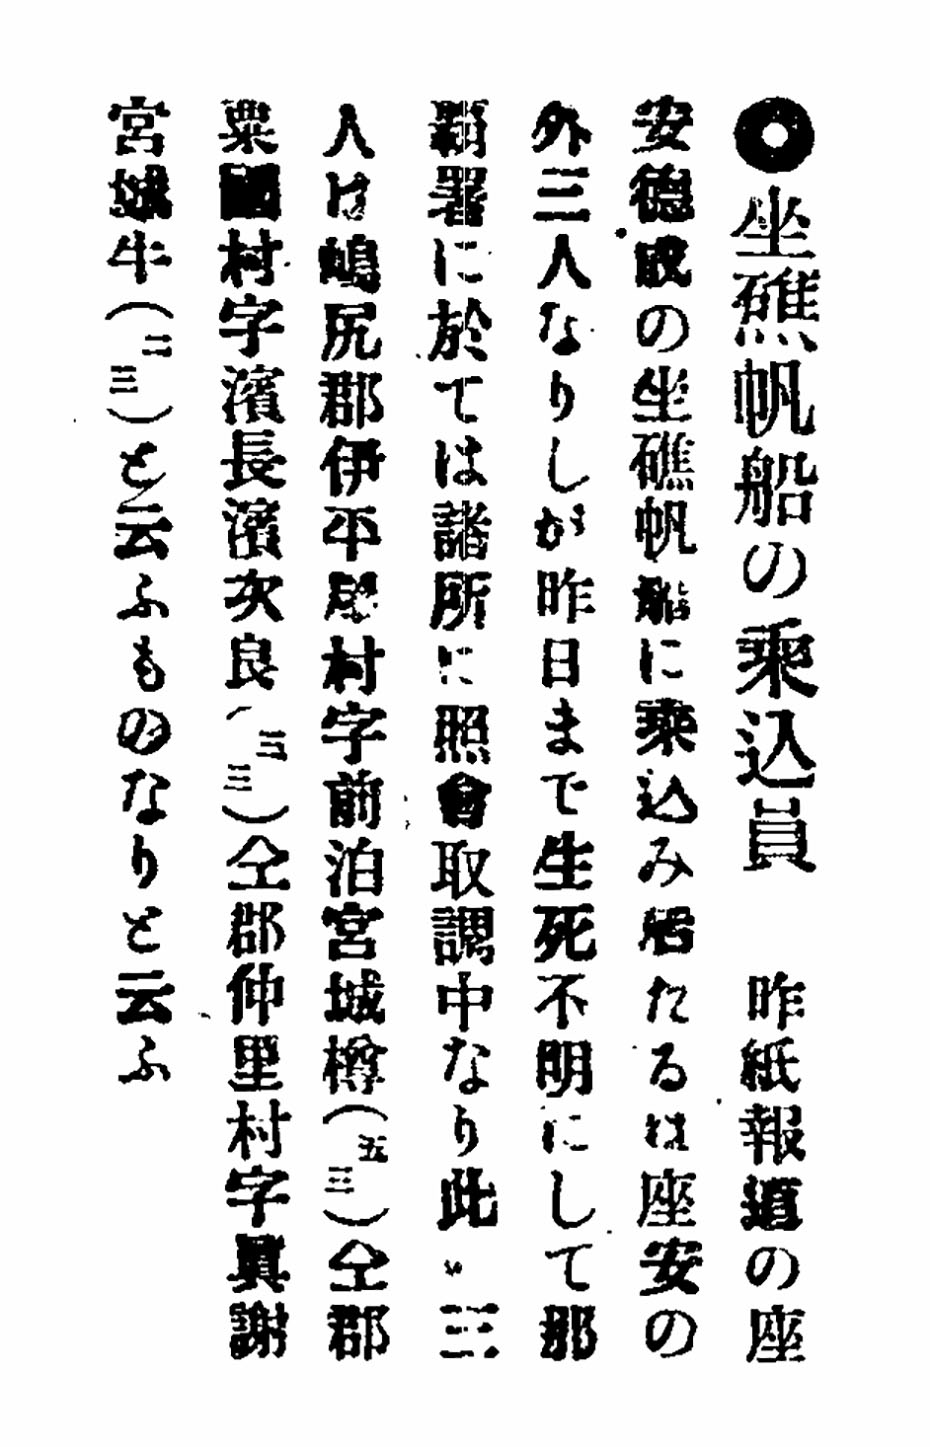 ◎坐礁帆船の乘込員　昨紙報道の座
安德成の坐礁帆船に乘込み居たるは座安の
外三人なりしが昨日まで生死不明にして那
覇署に於ては諸所に照會取調中なり此三
人は嶋尻郡伊平屋村字前泊宮城樽(三五)仝郡
粟國村字濱長濱次良(三三)仝郡仲里村字眞謝
宮城牛(三二)と云ふものなりと云ふ